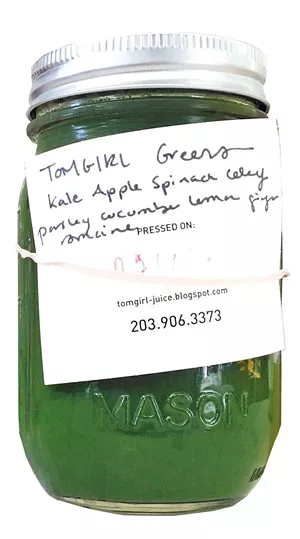 TOMGIRL Greens
Kale Apple Spinach celery
parsley cucumber lemon ginger
romaine PRESSED ON:
tomgirl-juice.blogspot.com
203.906.3373
MASON